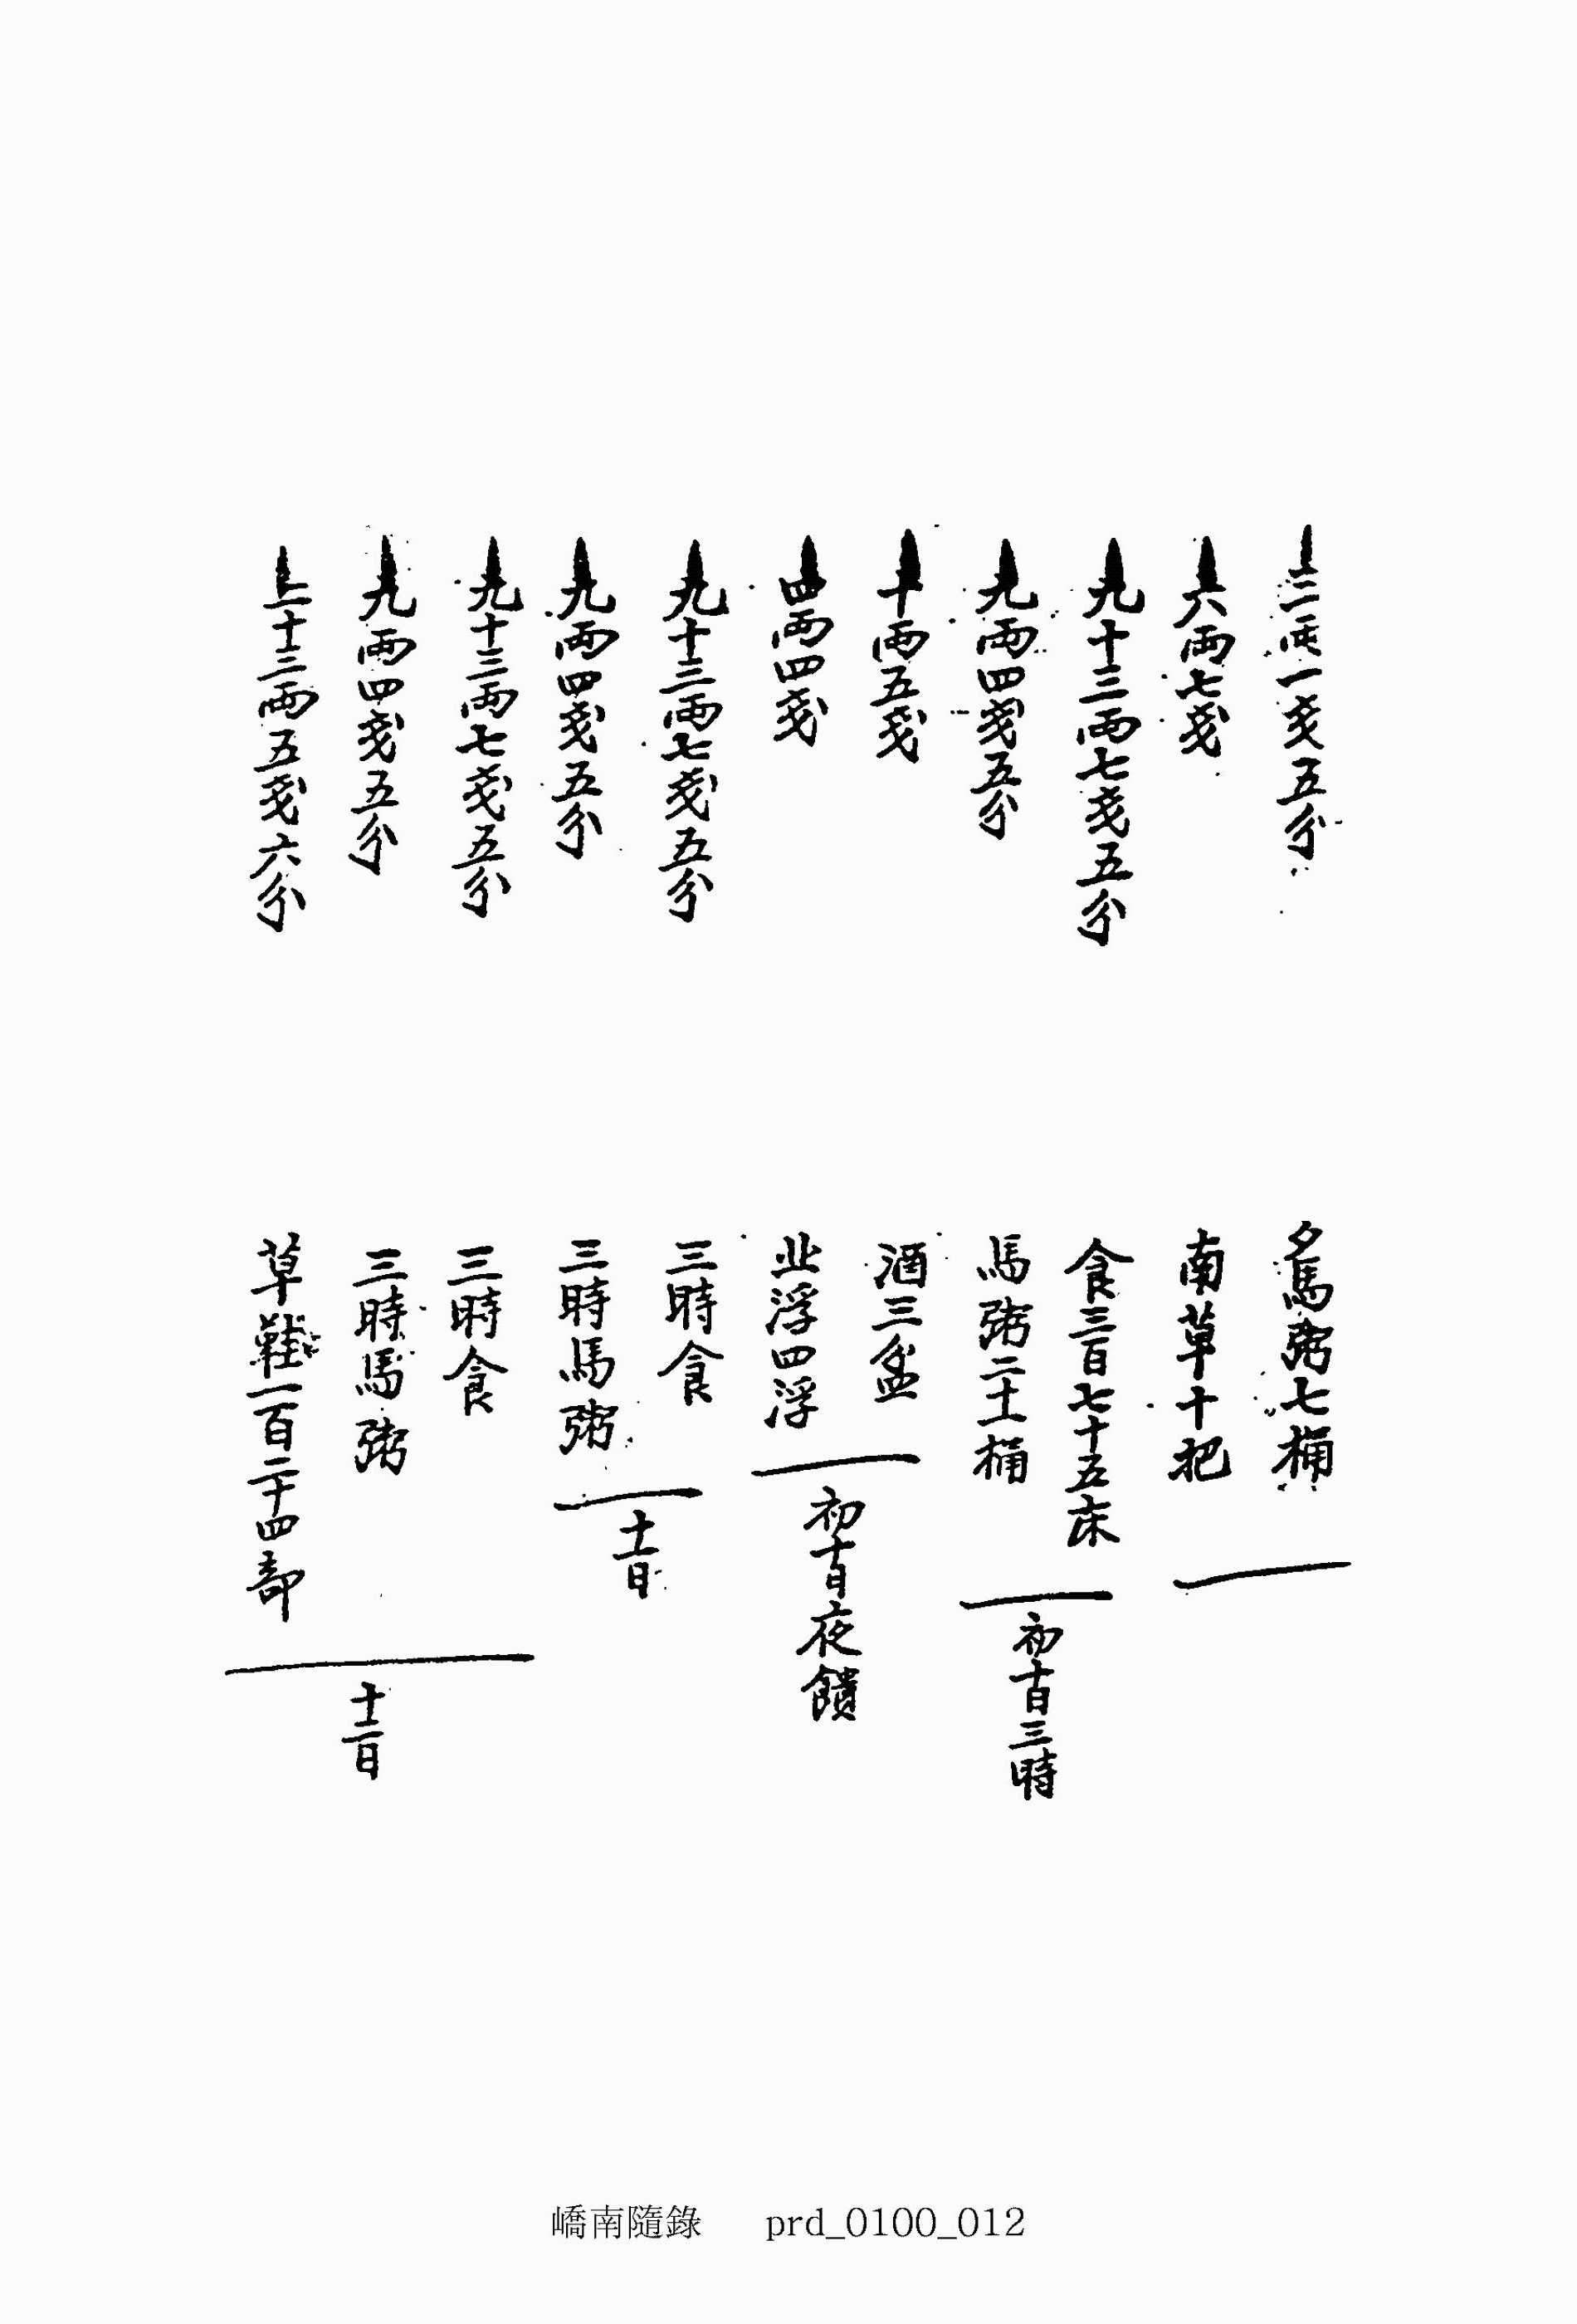 三両一戔五分 夕馬粥七桶
六両七戔 南草十把
九十三両七戔五分 食三百七十五床
九両四戔五分 馬粥二十一桶
初十日三時
十両五戔 酒三盆
四両四戔 业浮四浮
初十日夜饋
九十三両七戔五分 三時食
九両四戔五分 三時馬粥
十一日
九十三両七戔五分 三時食
九両四戔五分 三時馬粥
二十三両五戔六分 草鞋一百二十四部
十二日
嶠南隨錄 prd_0100_012